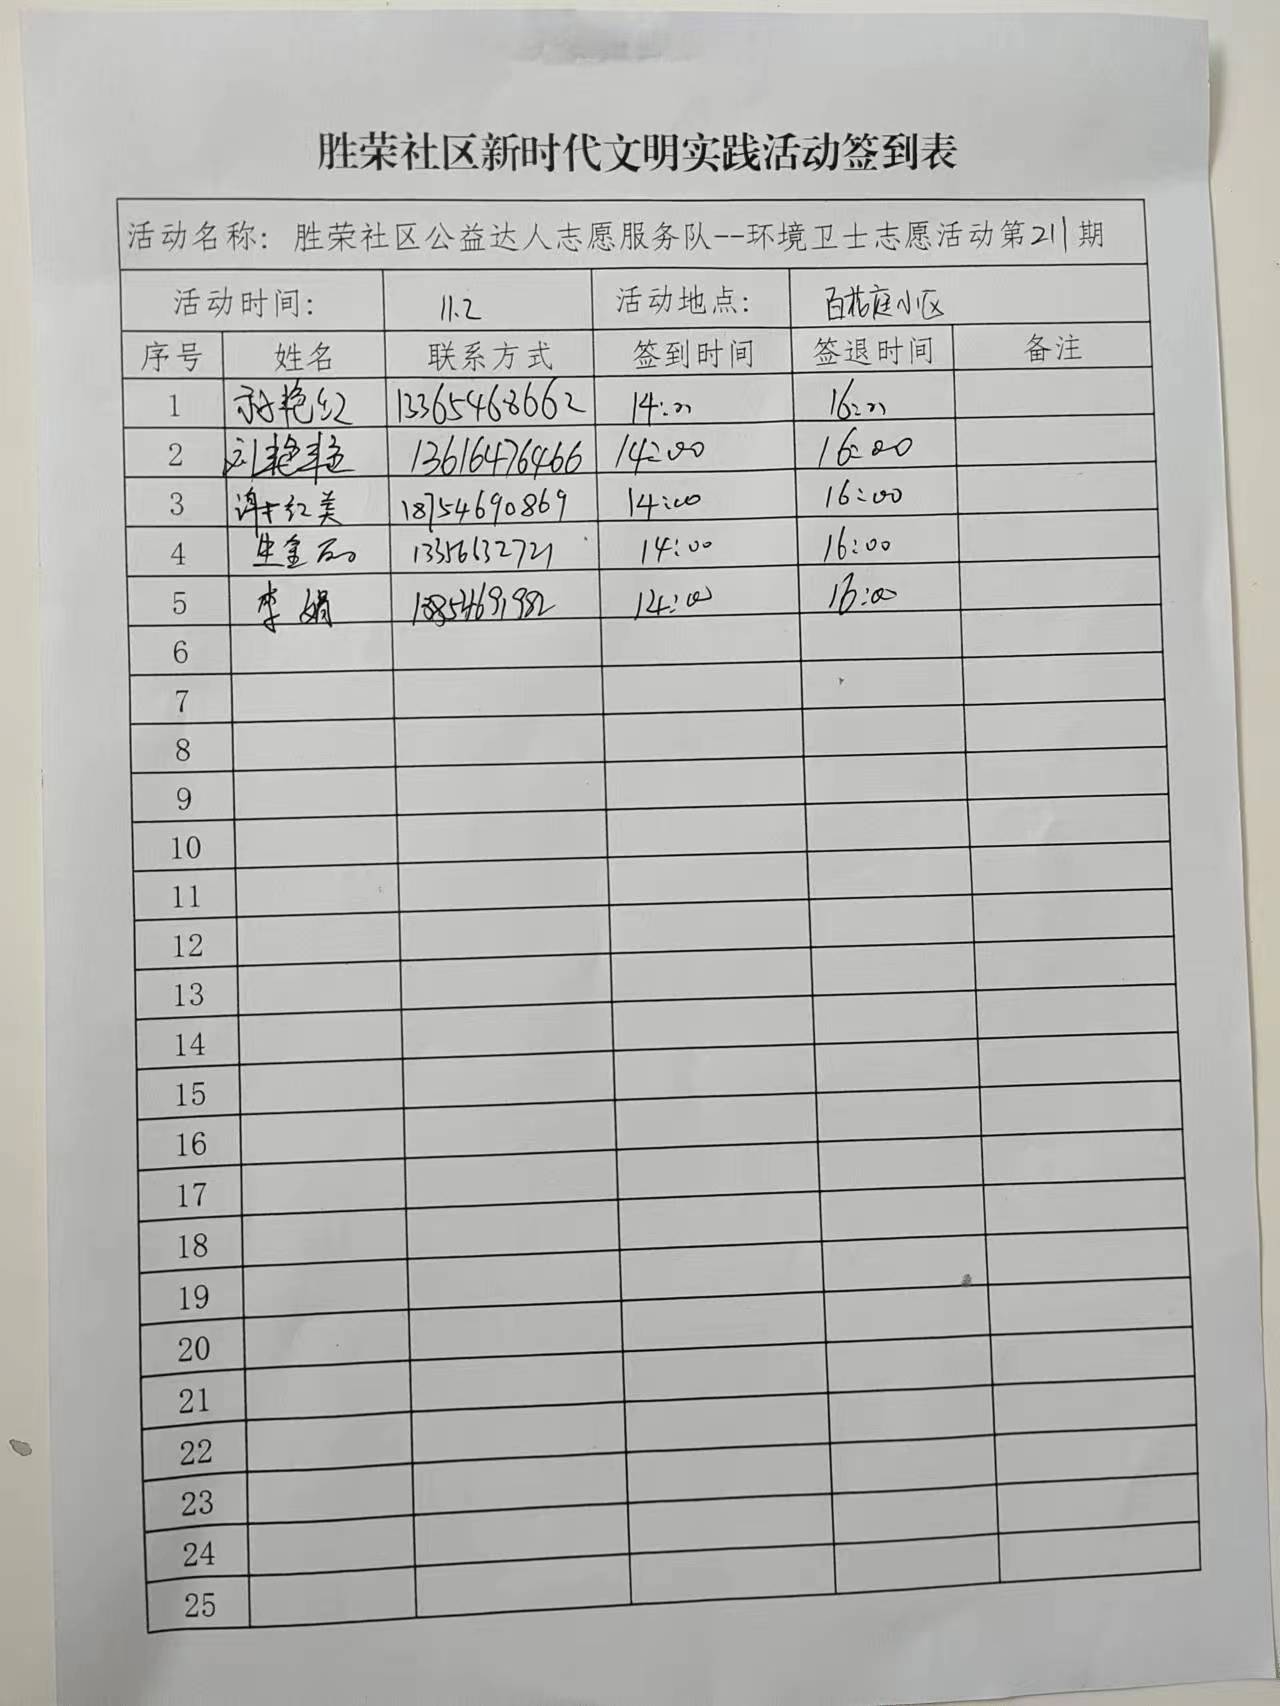 胜荣社区新时代文明实践活动签到表
活动名称：胜荣社区公益达人志愿服务队--环境卫士志愿活动第211期
活动时间： 11.2 活动地点： 百花庭小区
序号 姓名 联系方式 签到时间 签退时间 备注
1 艳红 13365468662 14:00 16:00
2 刘艳 13616476466 14:00 16:00
3 谢红美 18754690869 14:00 16:00
4 生金 13356132721 14:00 16:00
5 李娟 13854691982 14:00 16:00
6
7
8
9
10
11
12
13
14
15
16
17
18
19
20
21
22
23
24
25